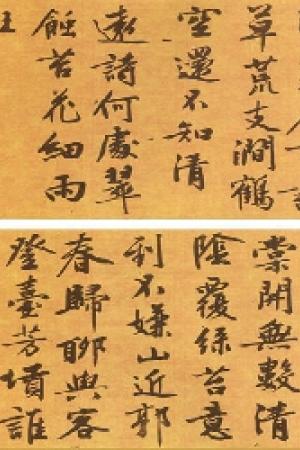 草荒支澗鶴
空還不知清
遠詩何處翠
蝕苔花細雨
王
棠開無數清
陰覆綠苔意
利不嫌山近郭
春歸聊與客
登臺芳墳誰